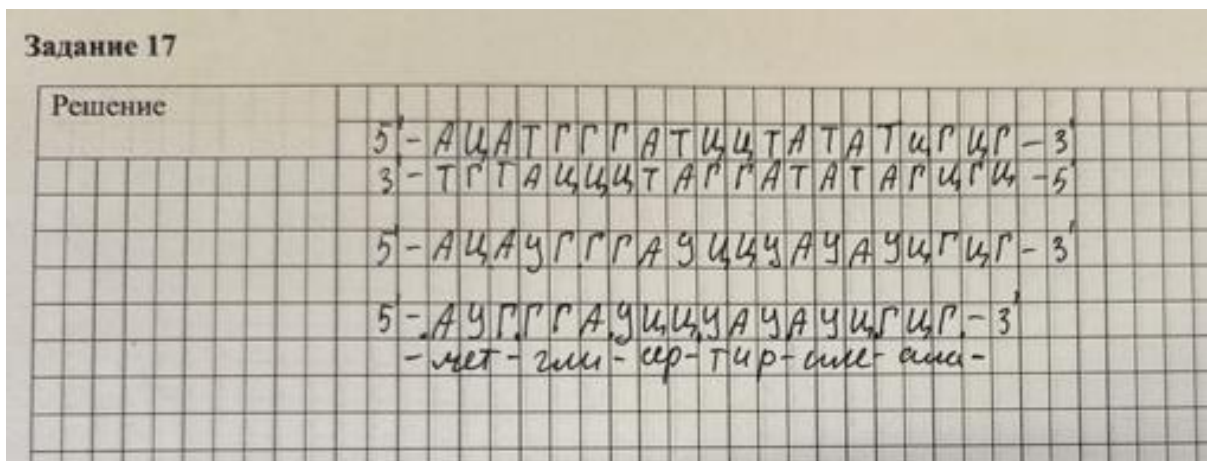 Задание 17
Решение
5'-АЦАТГГГАТЦЦТАТАТЦГЦГ-3'
3'-ТГТАЦЦЦТАГГАТАТАГЦГЦ-5'
5'-АЦАУГГГАУЦЦУАУАУЦГЦГ-3'
5'-АУГГГАУЦЦУАУАУЦГЦГ-3'
-мет-гли-сер-тир-иле-ала-